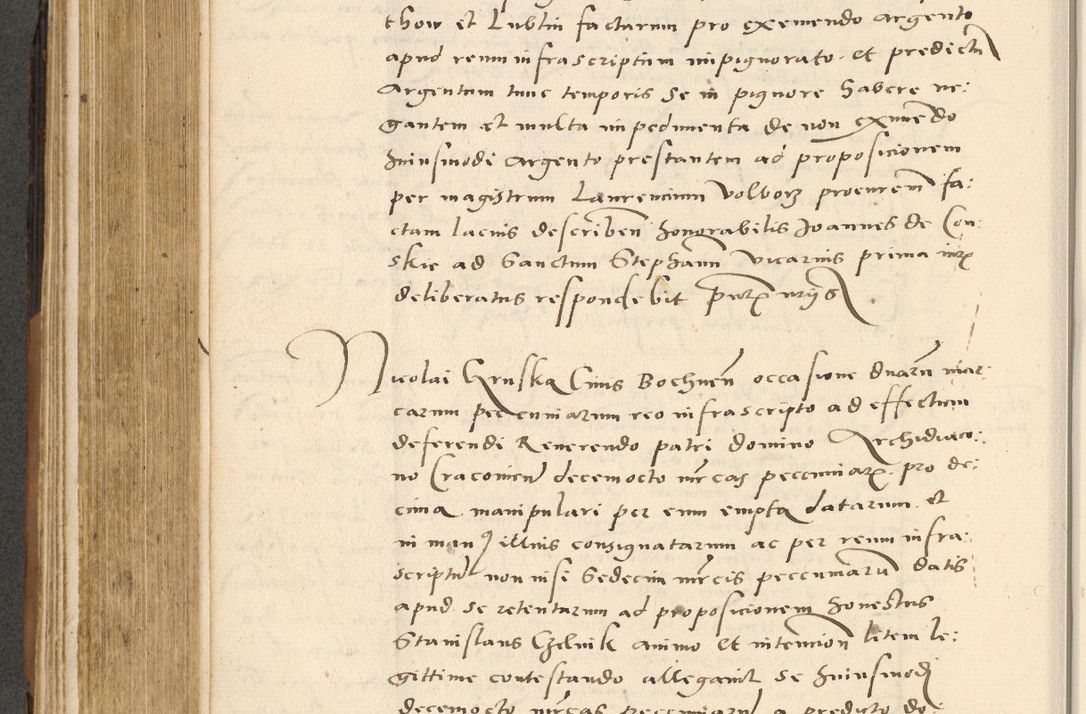 thow et Lublin factarum pro exemendo argento
apud reum infrascriptum impignorato et predictũ
Argentum tunc temporis se in pignore habere ne:
gantem et multa impedimenta de non exinmẽdo
huiusmodi argento prestantem ad proposicionem
per magistrum Laurencium Volborz procurem̃ fa:
ctam lacius describeñ honorabilis Joannes de Con:
skie ad Sanctum Stephanũ vicarius prima iurꝫ
deliberatus respondebit partꝫ
Nicolai Gruska Ciuis Bochneñ occasione duarũ mar:
carum peccuniarum reo infrascripto ad effectum
deferendi Reuerendo patri domino Archidiaco:
no Cracovieñ decemocto mrcas peccuniarꝫ pro de:
cima manipulari per eum empta datarum et
in manꝰ illius consignatarum ac per reum infra:
scriptũ non nisi Sedecim mrcis peccuniarũ datis
apud se retentarum ad proposicionem honestus
Stanislaus Czelnik animo et intencioñ litem le:
gittime contestando allegauit se huiusmodi
decemocto mrcas peccuniarũ a predicto do: